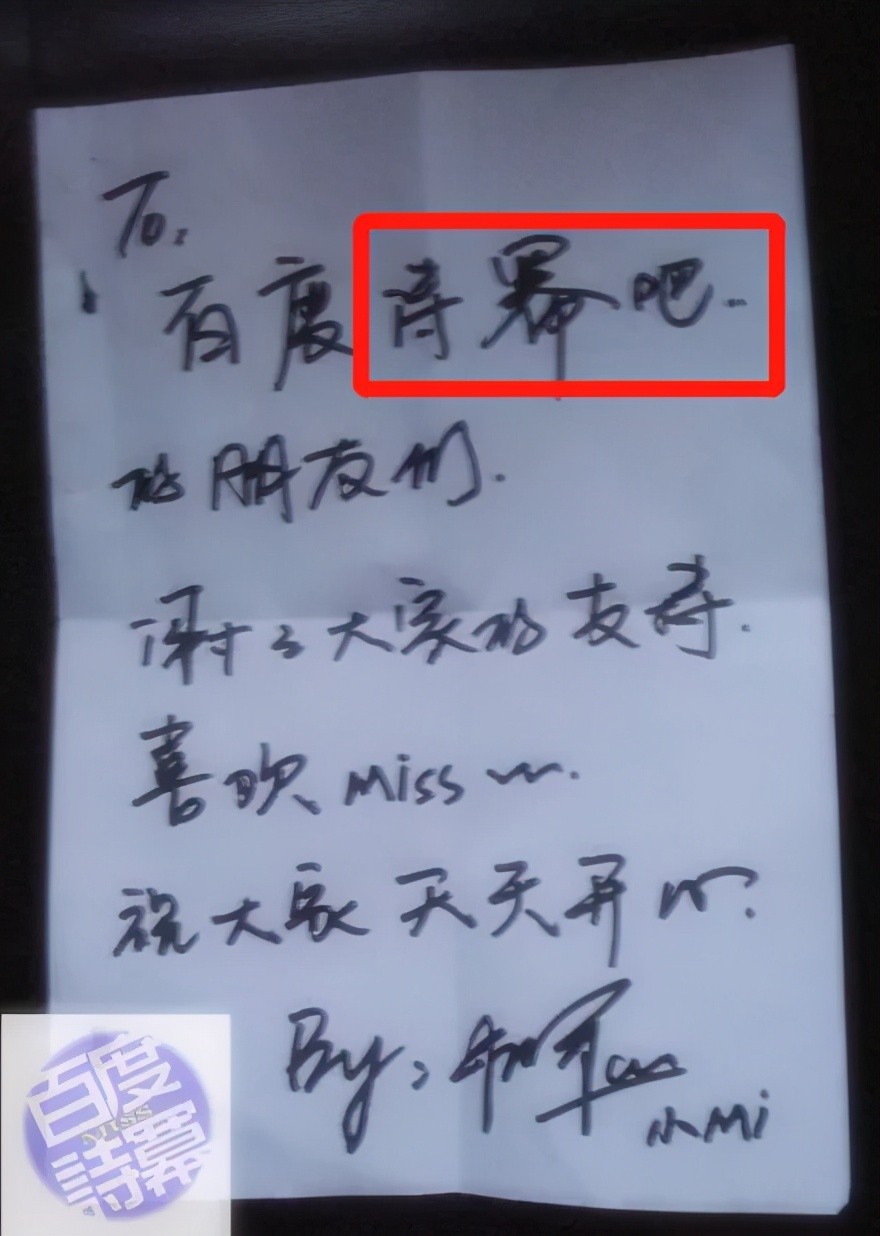 To:
百度诗幂吧...
的朋友们.
谢谢大家的支持.
喜欢 miss ~.
祝大家天天开心.
By: 杨幂
小Mi
百度
MISS
詩冪